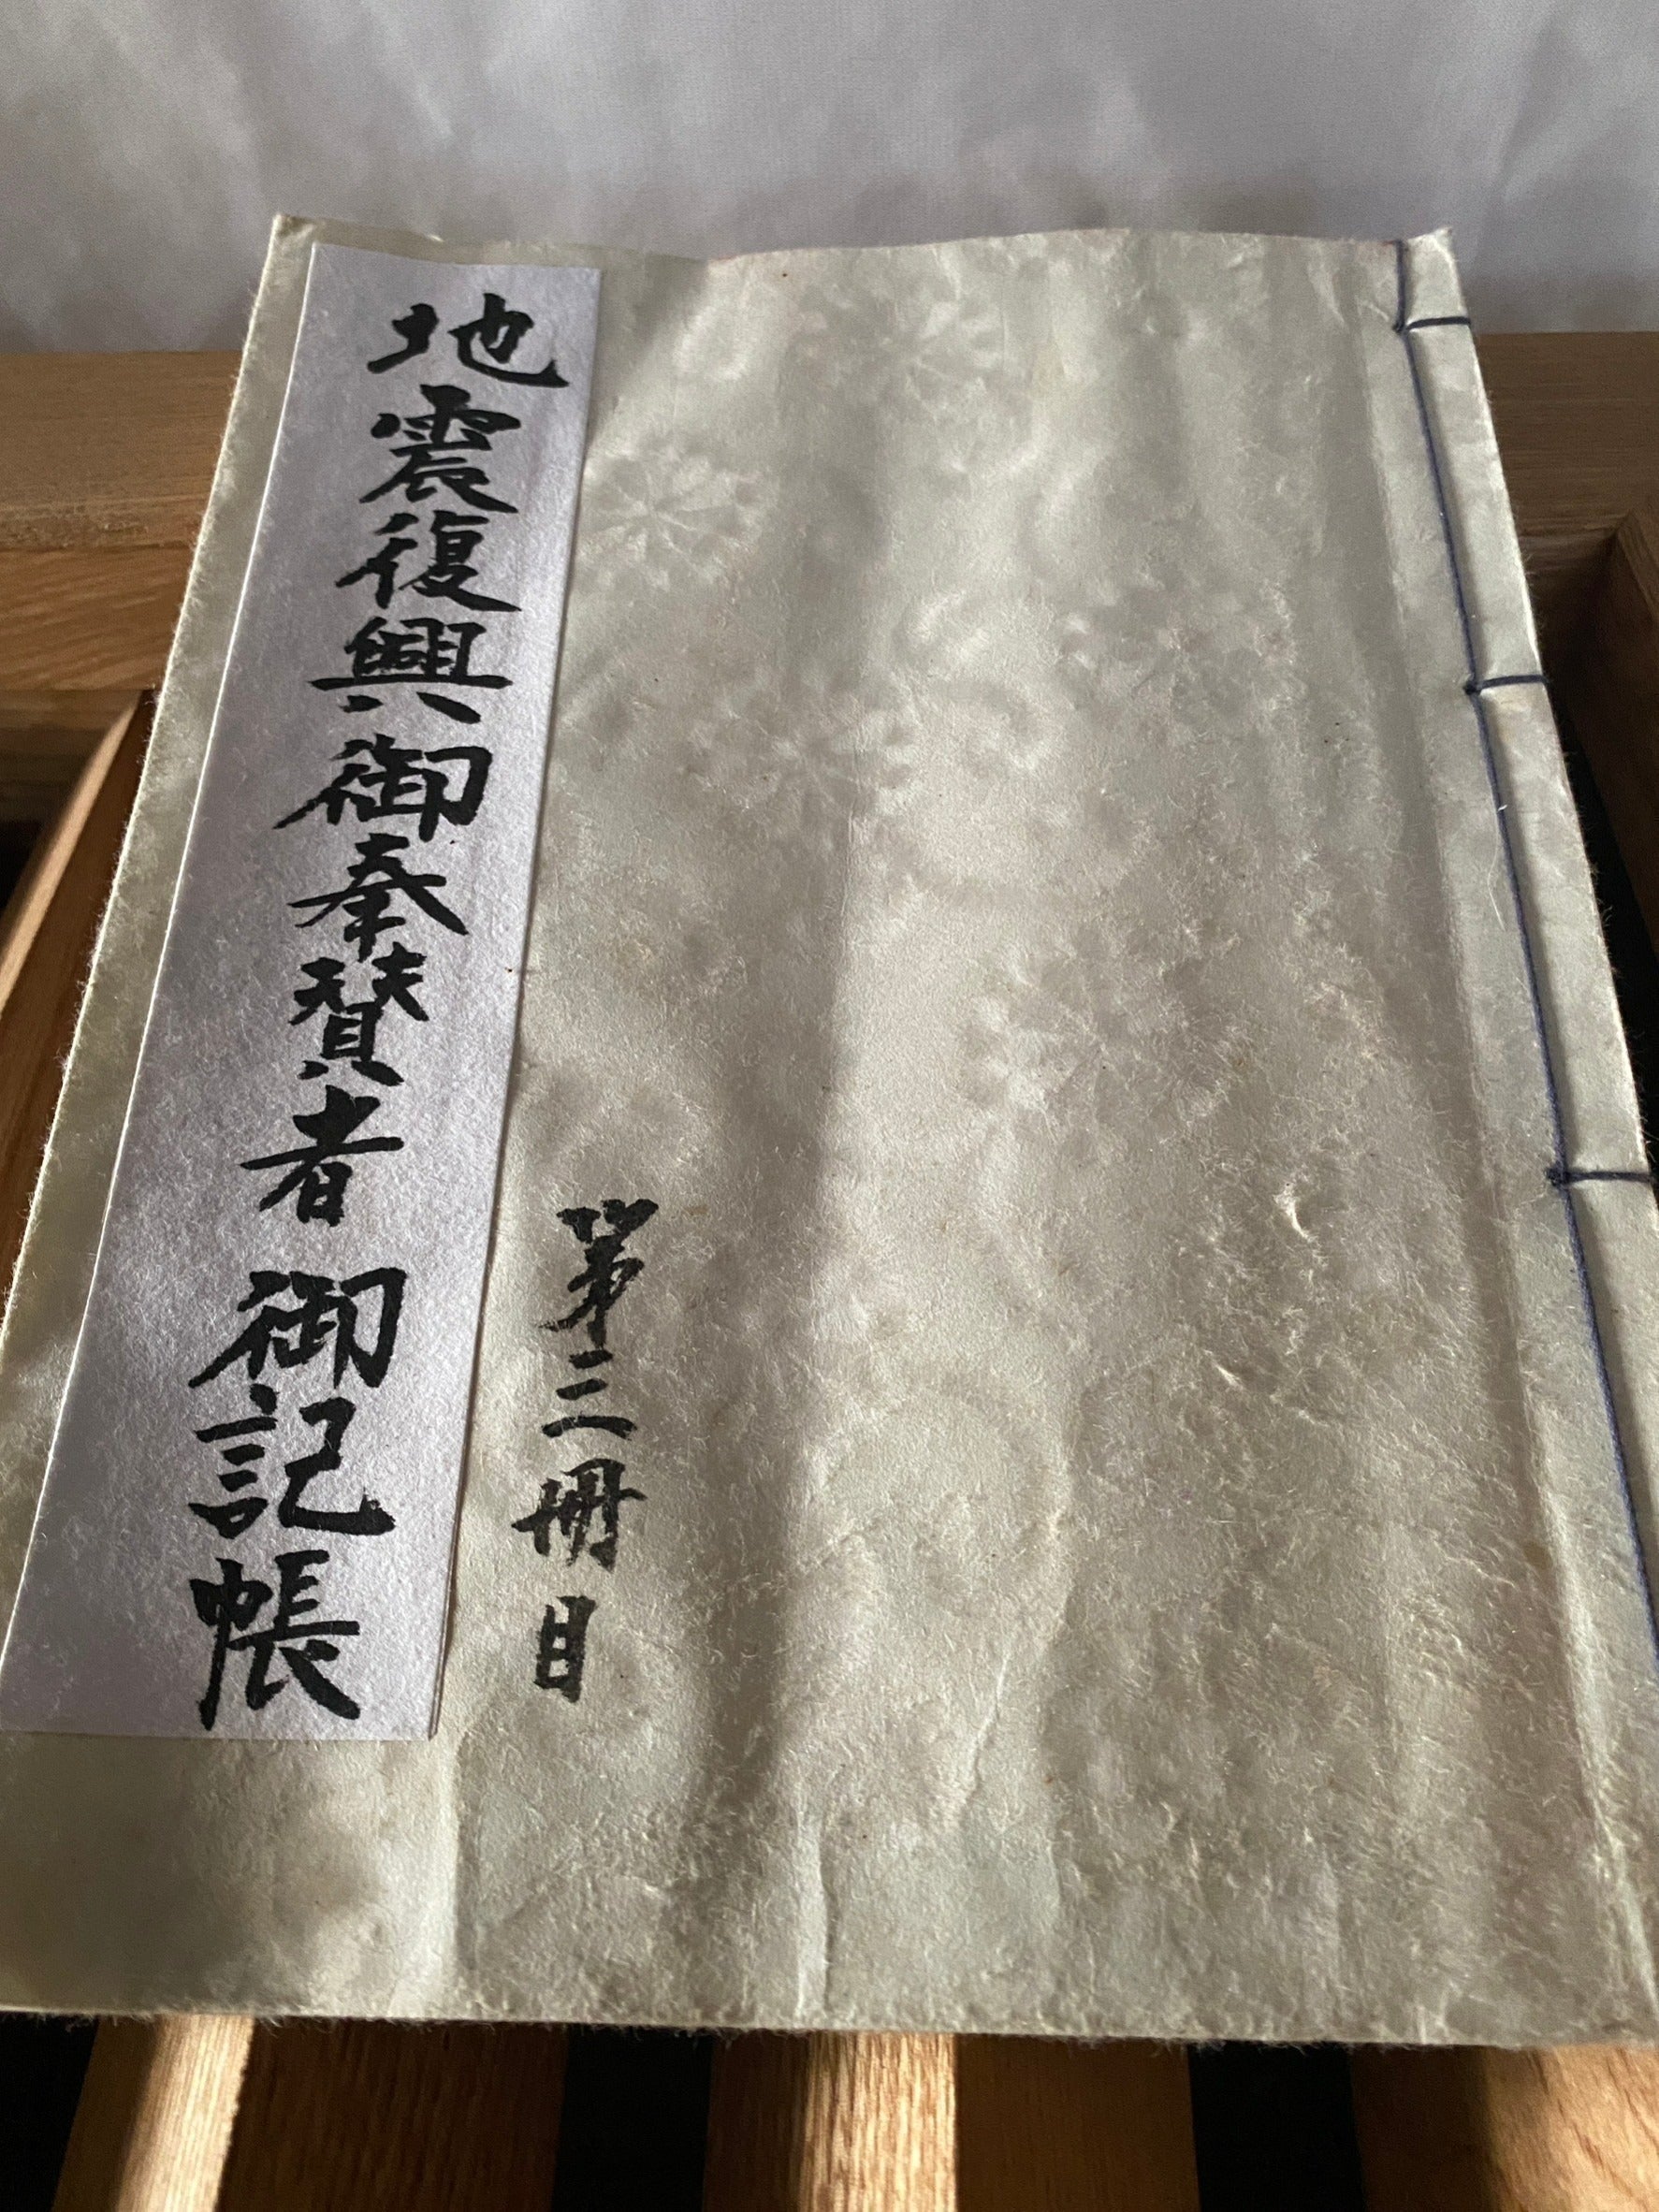 地震復興御奉賛者 御記帳
第三冊目